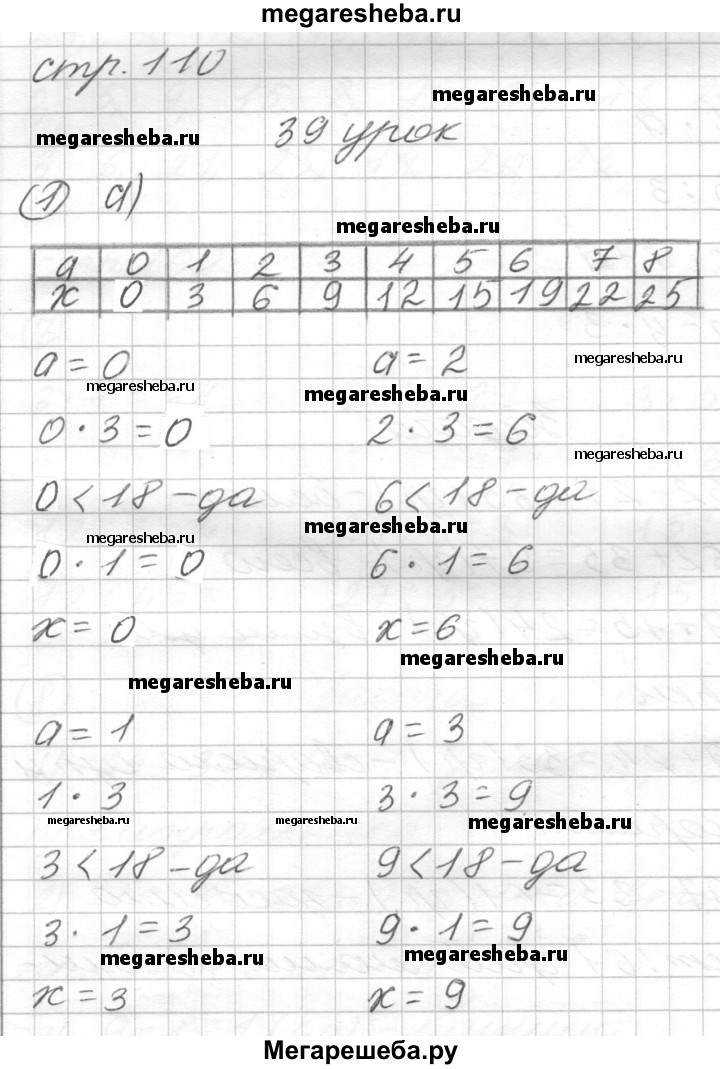 megaresheba.ru
стр. 110
megaresheba.ru
megaresheba.ru 39 урок
① а)
megaresheba.ru
а 0 1 2 3 4 5 6 7 8
х 0 3 6 9 12 15 19 22 25
а = 0 а = 2 megaresheba.ru
megaresheba.ru megaresheba.ru
0 · 3 = 0 2 · 3 = 6
megaresheba.ru
0 < 18 - да 6 < 18 - да
megaresheba.ru megaresheba.ru
0 · 1 = 0 6 · 1 = 6
х = 0 х = 6
megaresheba.ru
megaresheba.ru
а = 1 а = 3
1 · 3 3 · 3 = 9
megaresheba.ru megaresheba.ru megaresheba.ru
3 < 18 - да 9 < 18 - да
3 · 1 = 3 9 · 1 = 9
megaresheba.ru megaresheba.ru
х = 3 х = 9
Мегарешеба.ру